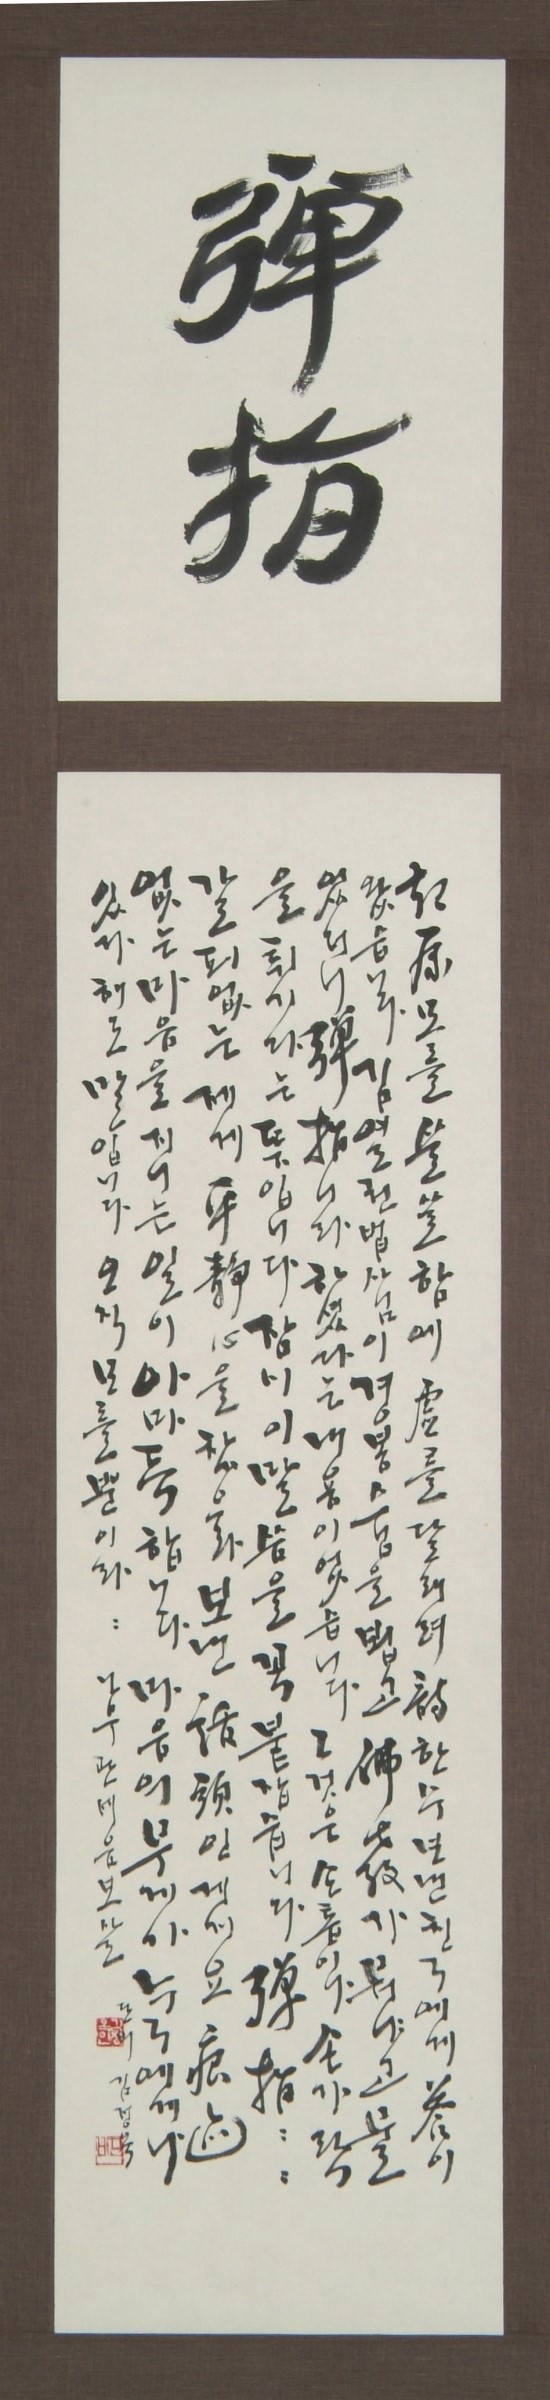 彈指
모를 뿐 함에 虛를 달래려 詩 한 수 보낸 친구에게 答이
왔습니다 김열권 법사님이 경봉스님을 뵙고 佛敎가 뭐냐고 물
었더니 彈指니라 하셨다는 내용이었습니다 그것은 손톱이나 손가락
을 튀기라는 뜻입니다 잠시 이 말씀을 꼭 붙잡습니다 彈指
갈피 없는 제게 平靜心을 찾으라 보낸 話頭인 게지요 痕迹
없는 마음을 지니는 일이 아마득 합니다 마음의 무게가 누구에게나
있다 해도 말입니다 오직 모를 뿐이라 나무관세음보살
김경옥